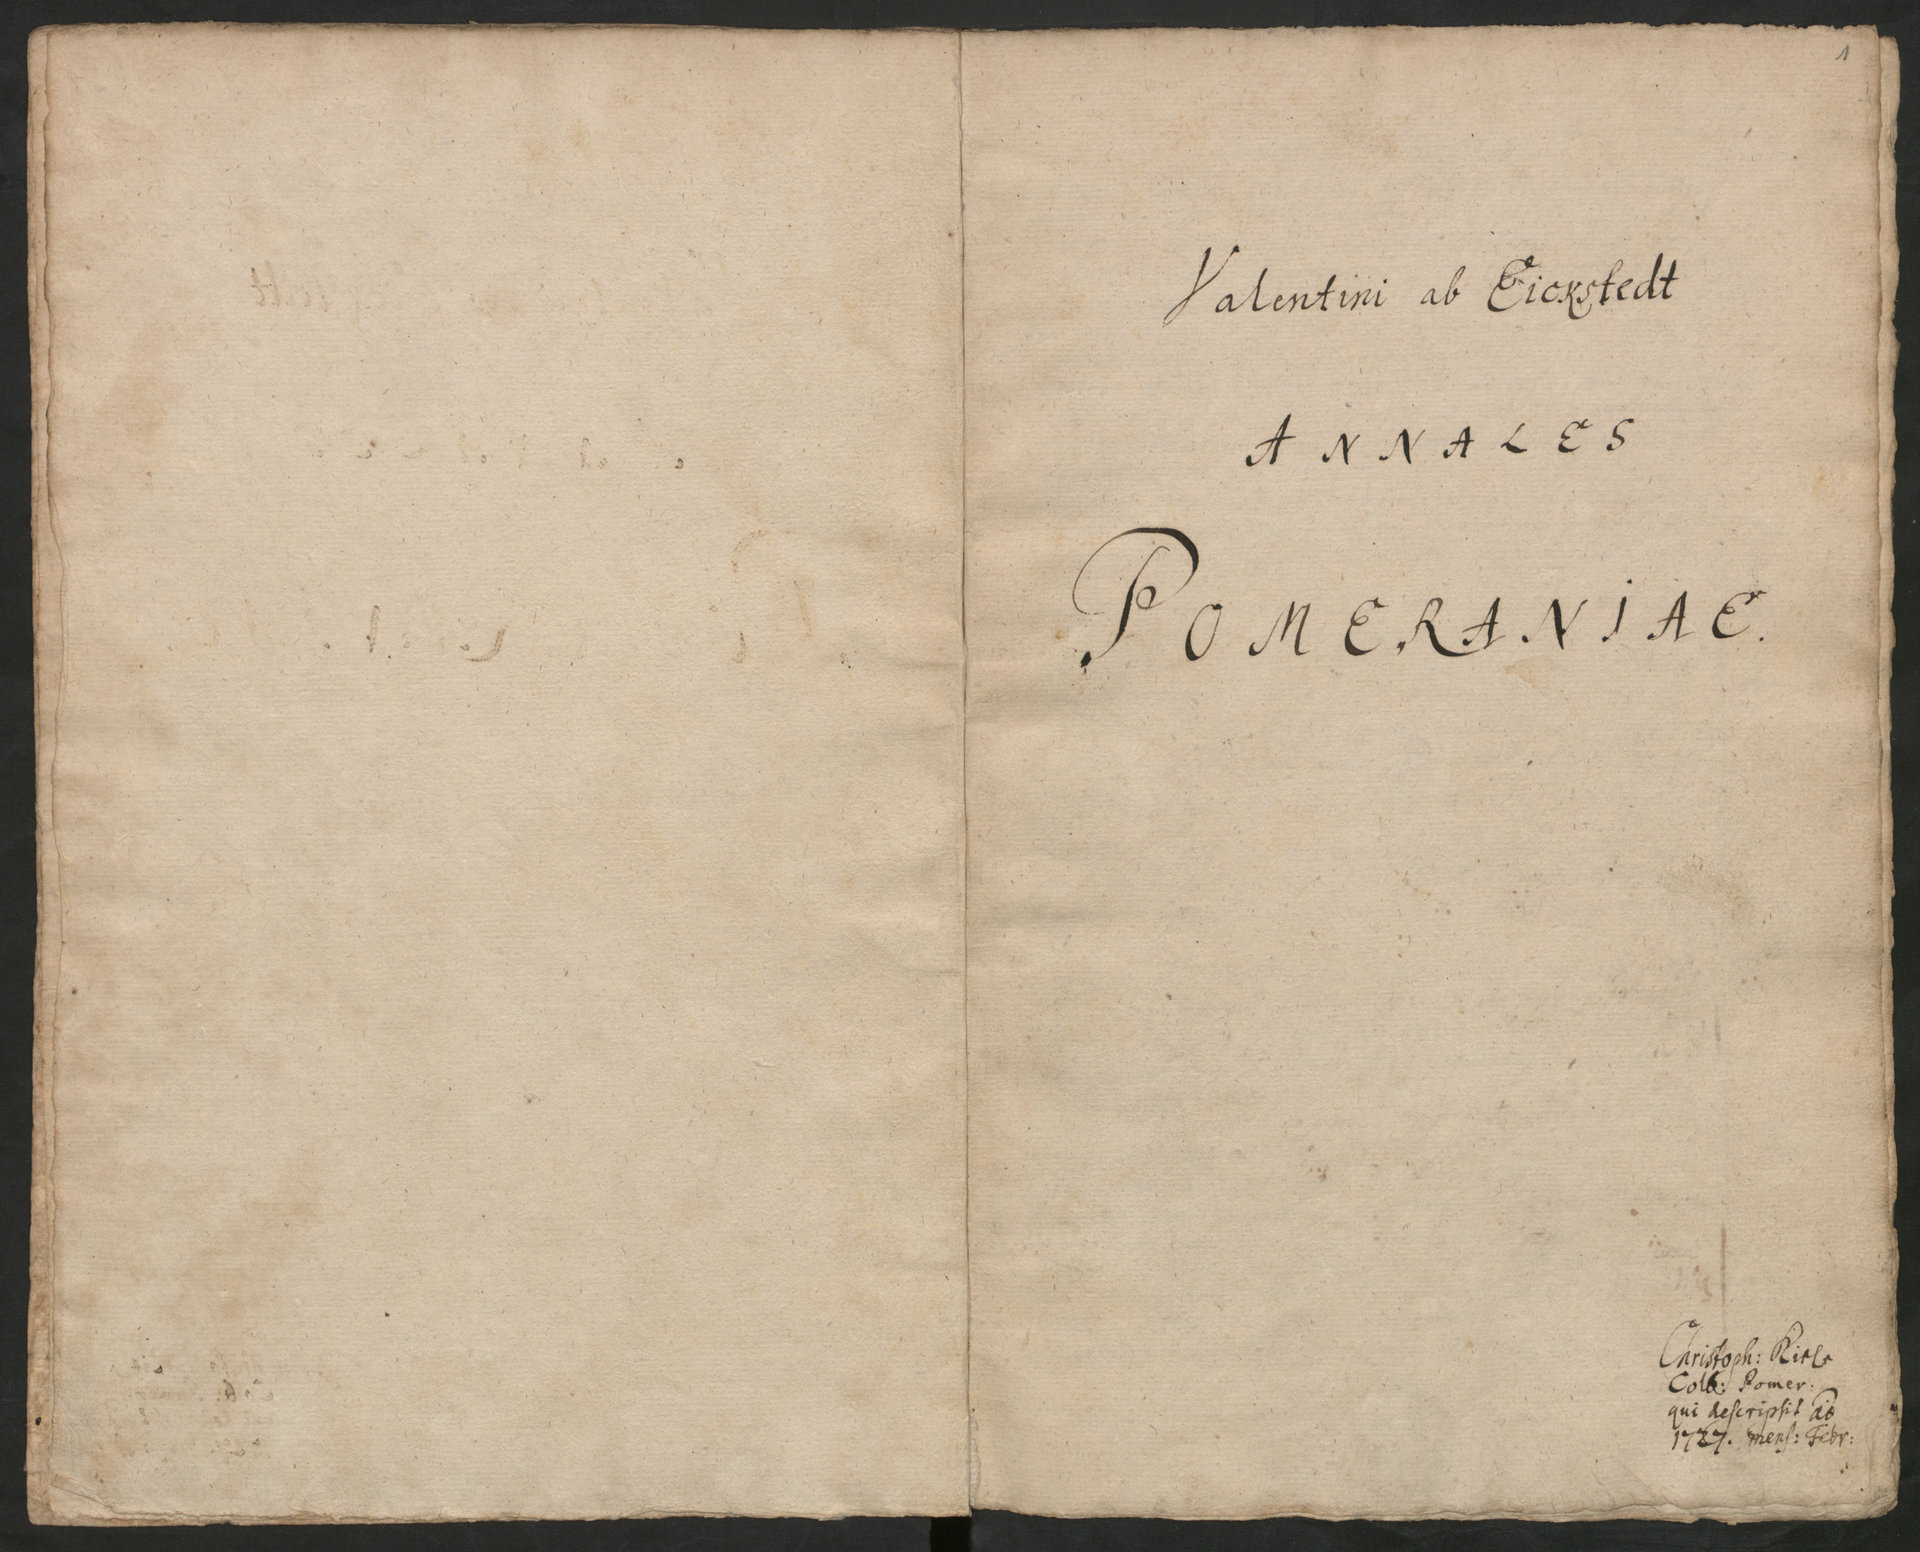 1
Valentini ab Eickstedt
ANNALES
POMERANIAE.
Christoph:
Colb: Pomer:
qui descripsit Aõ
1727. mens: Febr: